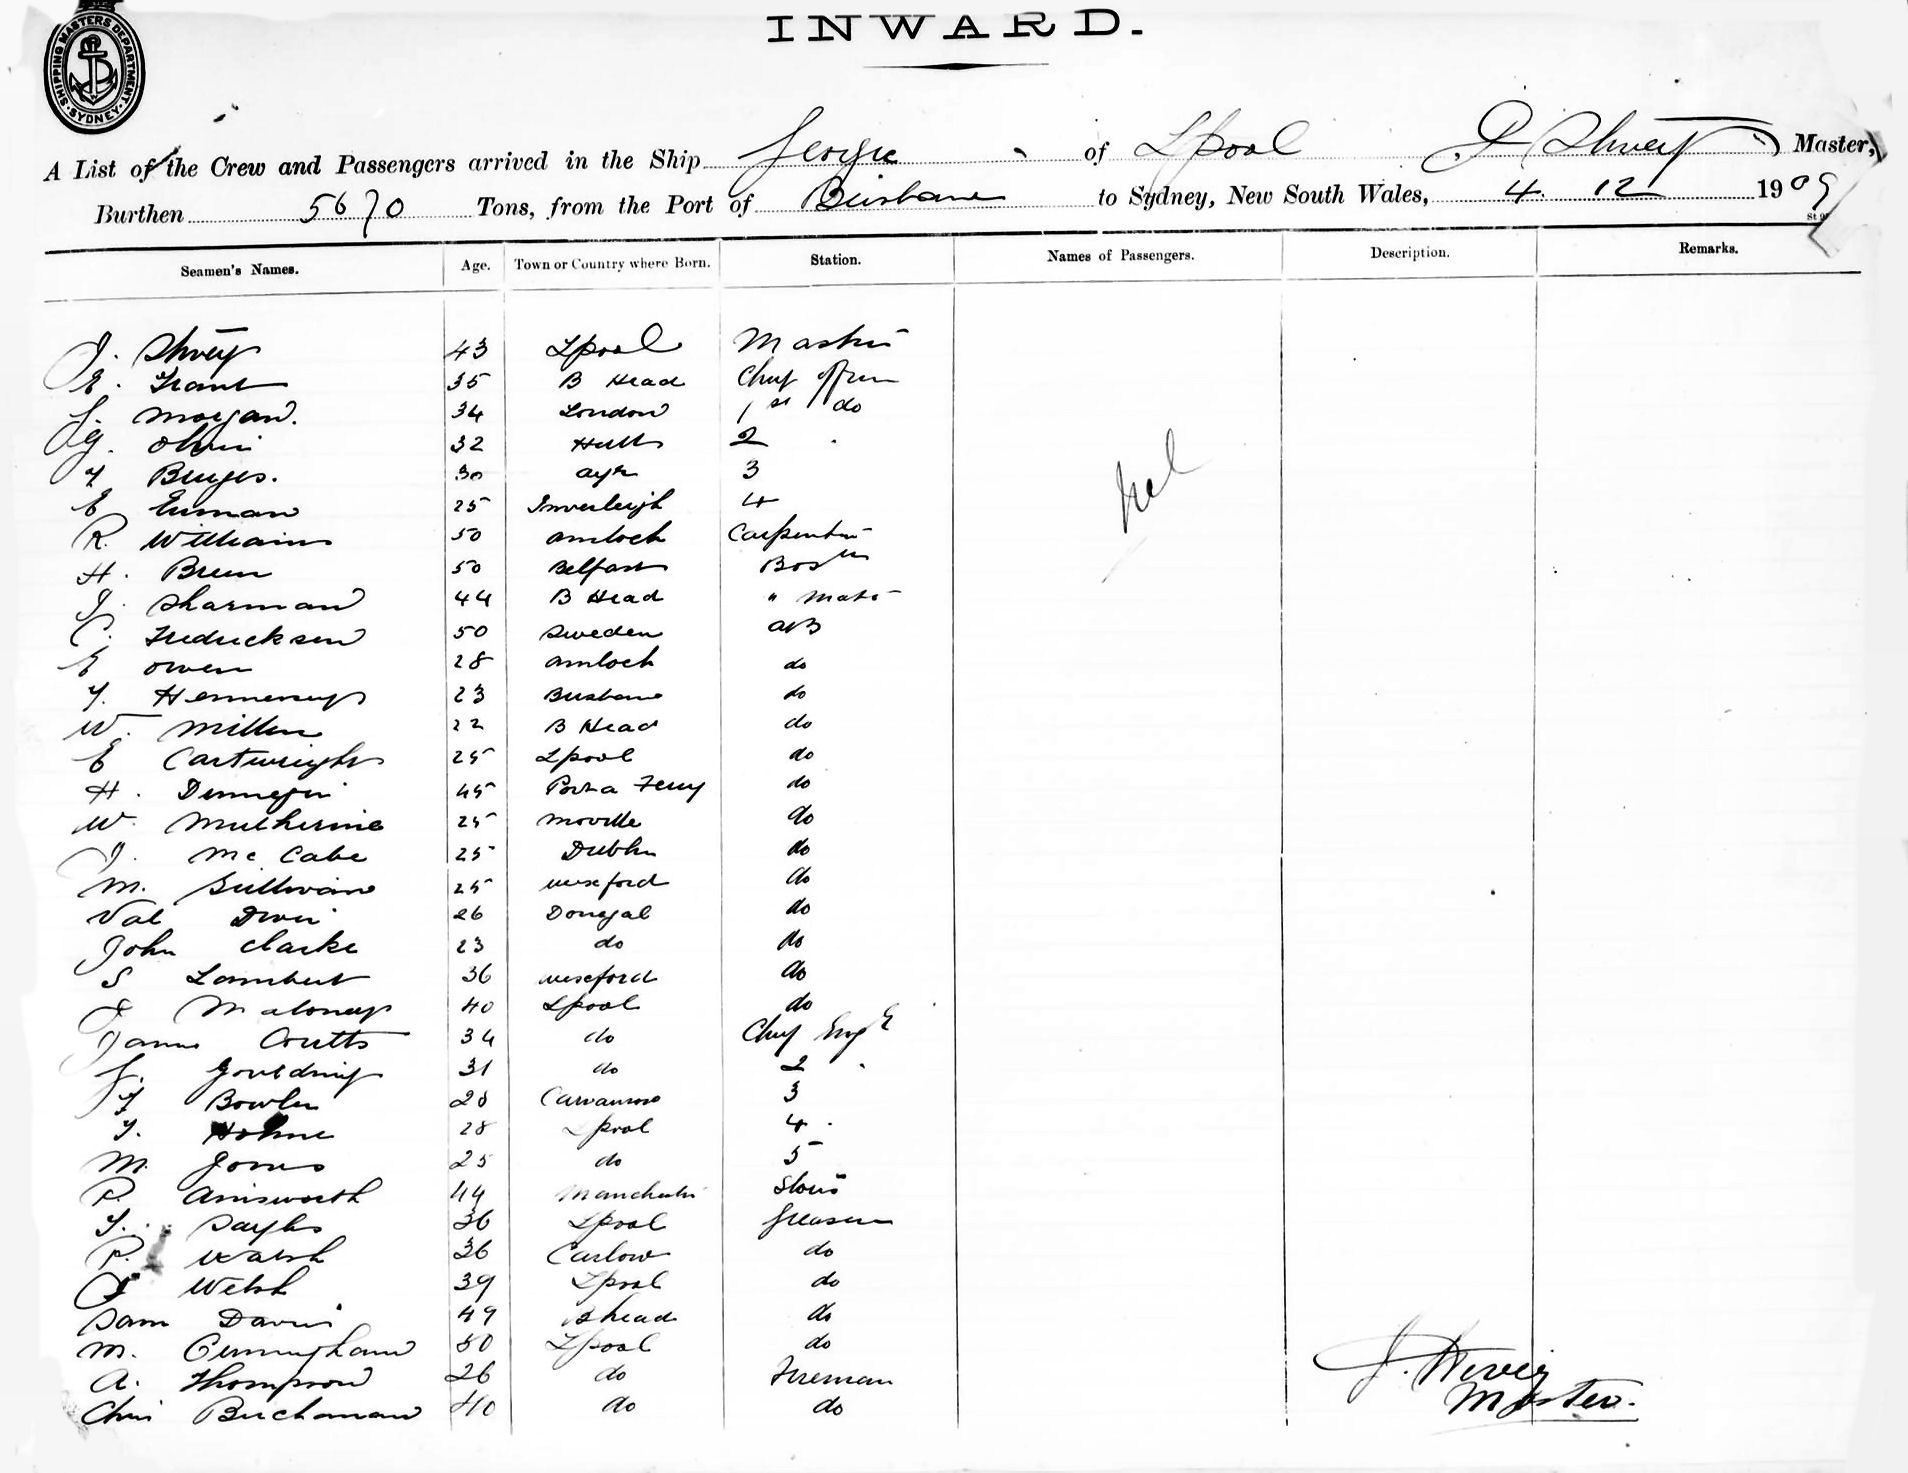 INWARD.
SHIPPING MASTERS DEPARTMENT. SYDNEY.
A List of the Crew and Passengers arrived in the Ship Georgic of Lpool Master,
Burthen 5670 Tons, from the Port of Brisbane to Sydney, New South Wales, 4. 12 1909
Seamen's Names. Age. Town or Country where Born. Station. Names of Passengers. Description. Remarks.
J. 43 Lpool Master
E. Grant 35 B Head Chief Officer
J. Morgan. 34 London 1st do
G. 32 Hull 2
30 Ayr 3
E 25 Inverleigh 4
nil
R. Williams 50 Amloch Carpenter
H. 50 Belfast Bosun
J. Sharman 44 B Head " Mate
C. Fredricksen 50 Sweden AB
E Owen 28 Amloch do
T. Hennessy 23 Brisbane do
W. Miller 22 B Head do
E Cartwright 25 Lpool do
H. 45 Porta Ferry do
W. 25 Moville do
J. Mc Cabe 25 Dublin do
M. Sullivan 25 Wexford do
Val 26 Donegal do
John Clarke 23 do do
S Lambert 36 Wexford do
J Maloney 40 Lpool do
James Coutts 34 do Chief Engr
J. Goulding 31 do 2
Bowler 28 3
T. 28 Lpool 4.
M. Jones 25 do 5
P. Ainsworth 44 Manchester
T. Sayles 36 Lpool Greaser
P. Walsh 36 Carlow do
J Welsh 39 Lpool do
Sam Davis 49 Bhead do
M. Cunningham 50 Lpool do
A. Thompson 26 do Fireman
Chris Buchanan 40 do do
J.
Master.